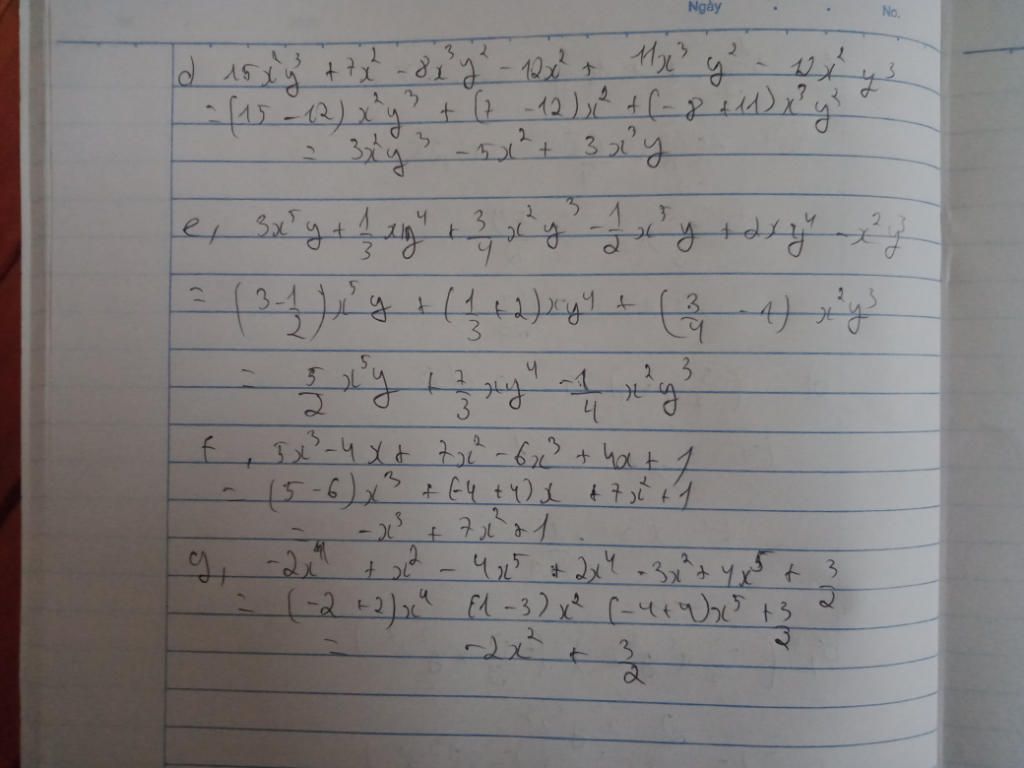 Ngày . . No.
d 15x²y³ + 7x² - 8x³y² - 12x² + 11x³y² - 12x²y³
= (15 - 12) x²y³ + (7 - 12) x² + (- 8 + 11) x³y²
= 3x²y³ - 5x² + 3x³y
e, 3x⁵y + 1/3 xy⁴ + 3/4 x²y³ - 1/2 x⁵y + 2xy⁴ - x²y³
= (3 - 1/2) x⁵y + (1/3 + 2) xy⁴ + (3/4 - 1) x²y³
= 5/2 x⁵y + 7/3 xy⁴ - 1/4 x²y³
f, 5x³ - 4x + 7x² - 6x³ + 4x + 1
= (5 - 6) x³ + (-4 + 4) x + 7x² + 1
= -x³ + 7x² + 1.
g, -2x⁴ + x² - 4x⁵ + 2x⁴ - 3x² + 4x⁵ + 3/2
= (-2 + 2) x⁴ (1 - 3) x² (-4 + 4) x⁵ + 3/2
= -2x² + 3/2